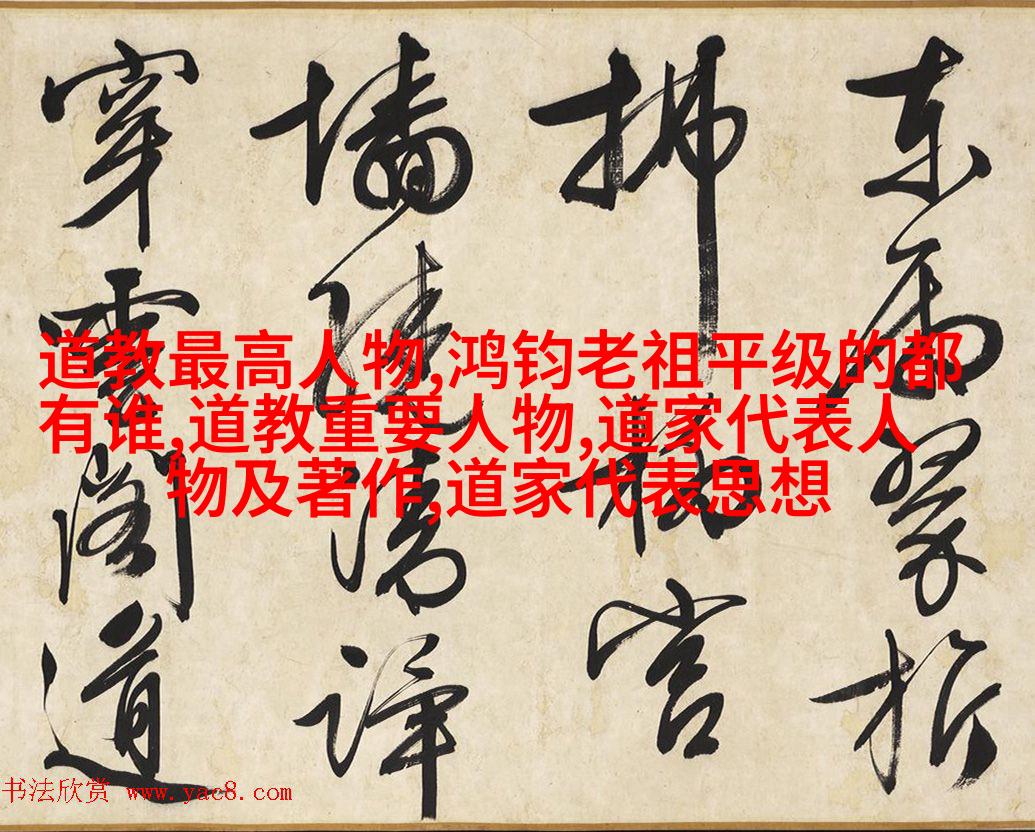 道教最高人物,鸿钧老祖平级的都
有谁,道教重要人物,道家代表人
物及著作,道家代表思想
東翠
拂
墻清
穿雲閣道
书法欣赏 www.yac8.com